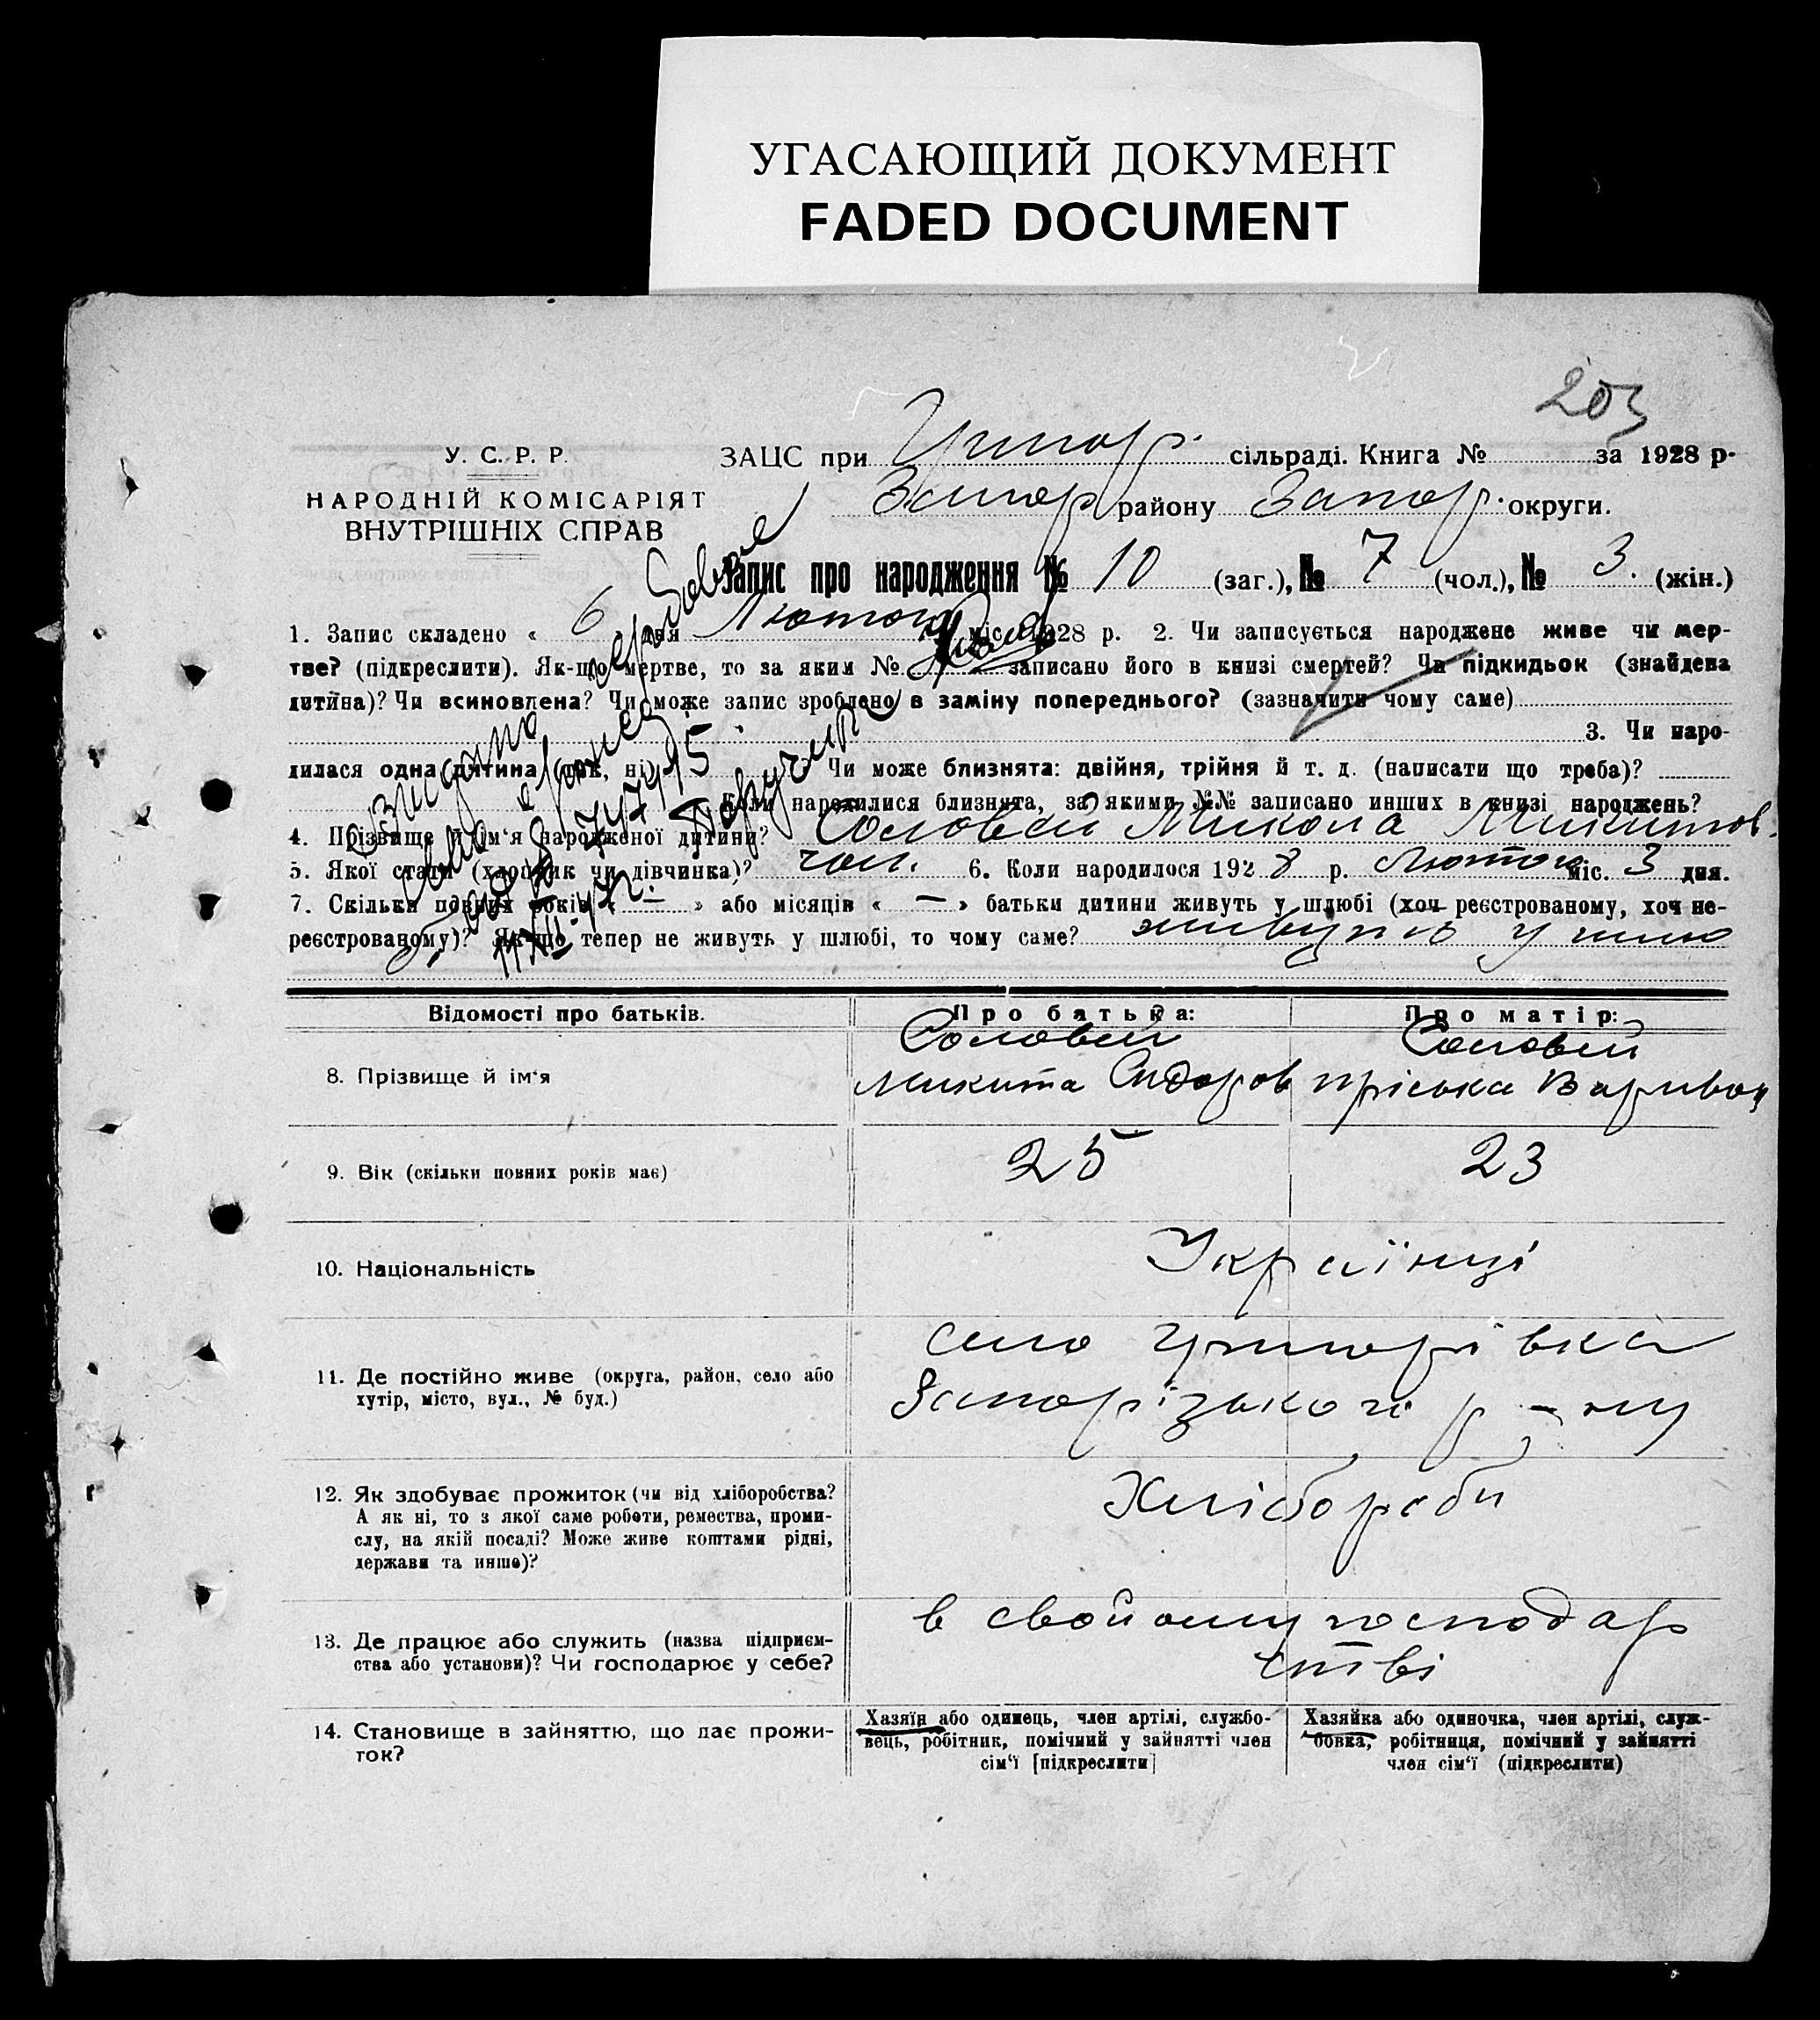 УГАСАЮЩИЙ ДОКУМЕНТ
FADED DOCUMENT
203
У. С. Р. Р.
НАРОДНІЙ КОМІСАРІЯТ
ВНУТРІШНІХ СПРАВ
ЗАЦС при Григор. сільраді. Книга № за 1928 р.
Запор району Запор. округи.
Запис про народження № 10 (заг.), № 7 (чол.), № 3. (жін.)
1. Запис складено « 6 дня Лютого міс. 1928 р. 2. Чи записується народжене живе чи мер-
тве? (підкреслити). Як-що мертве, то за яким № записано його в книзі смертей? Чи підкидьок (знайдена
дитина)? Чи всиновлена? Чи може запис зроблено в заміну попереднього? (зазначити чому саме)
3. Чи наро-
дилася одна дитина (так, ні) Чи може близнята: двійня, трійня й т. д. (написати що треба)?
Коли народилися близнята, за якими №№ записано инших в книзі народжень?
4. Прізвище й ім'я народженої дитини? Соловей Микола Микитов.
5. Якої статі (хлопчик чи дівчинка)? чол. 6. Коли народилося 1928 р. Лютого міс. 3 дня.
7. Скільки повних років « — » або місяців « — » батьки дитини живуть у шлюбі (хоч реєстрованому, хоч не-
реєстрованому)? Як-що тепер не живуть у шлюбі, то чому саме? живуть у шлю
Видано
Відомості про батьків.
Про батька:
Про матір:
8. Прізвище й ім'я
Соловей
Микита Сидоров
Соловей
Пріська
9. Вік (скільки повних років має)
25
23
10. Національність
Українці
11. Де постійно живе (округа, район, село або
хутір, місто, вул., № буд.)
село Григорівка
Запорізького р-ну
12. Як здобуває прожиток (чи від хліборобства?
А як ні, то з якої саме роботи, ремества, проми-
слу, на якій посаді? Може живе коштами рідні,
держави та инше)?
Хлібороби
13. Де працює або служить (назва підприєм-
ства або установи)? Чи господарює у себе?
в свойому господар
стві
14. Становище в зайняттю, що дає прожи-
ток?
Хазяїн або одинець, член артілі, службо-
вець, робітник, помічний у зайнятті член
сім'ї [підкреслити]
Хазяйка або одиночка, член артілі, служ-
бовка, робітниця, помічний у зайнятті
член сім'ї (підкреслити)